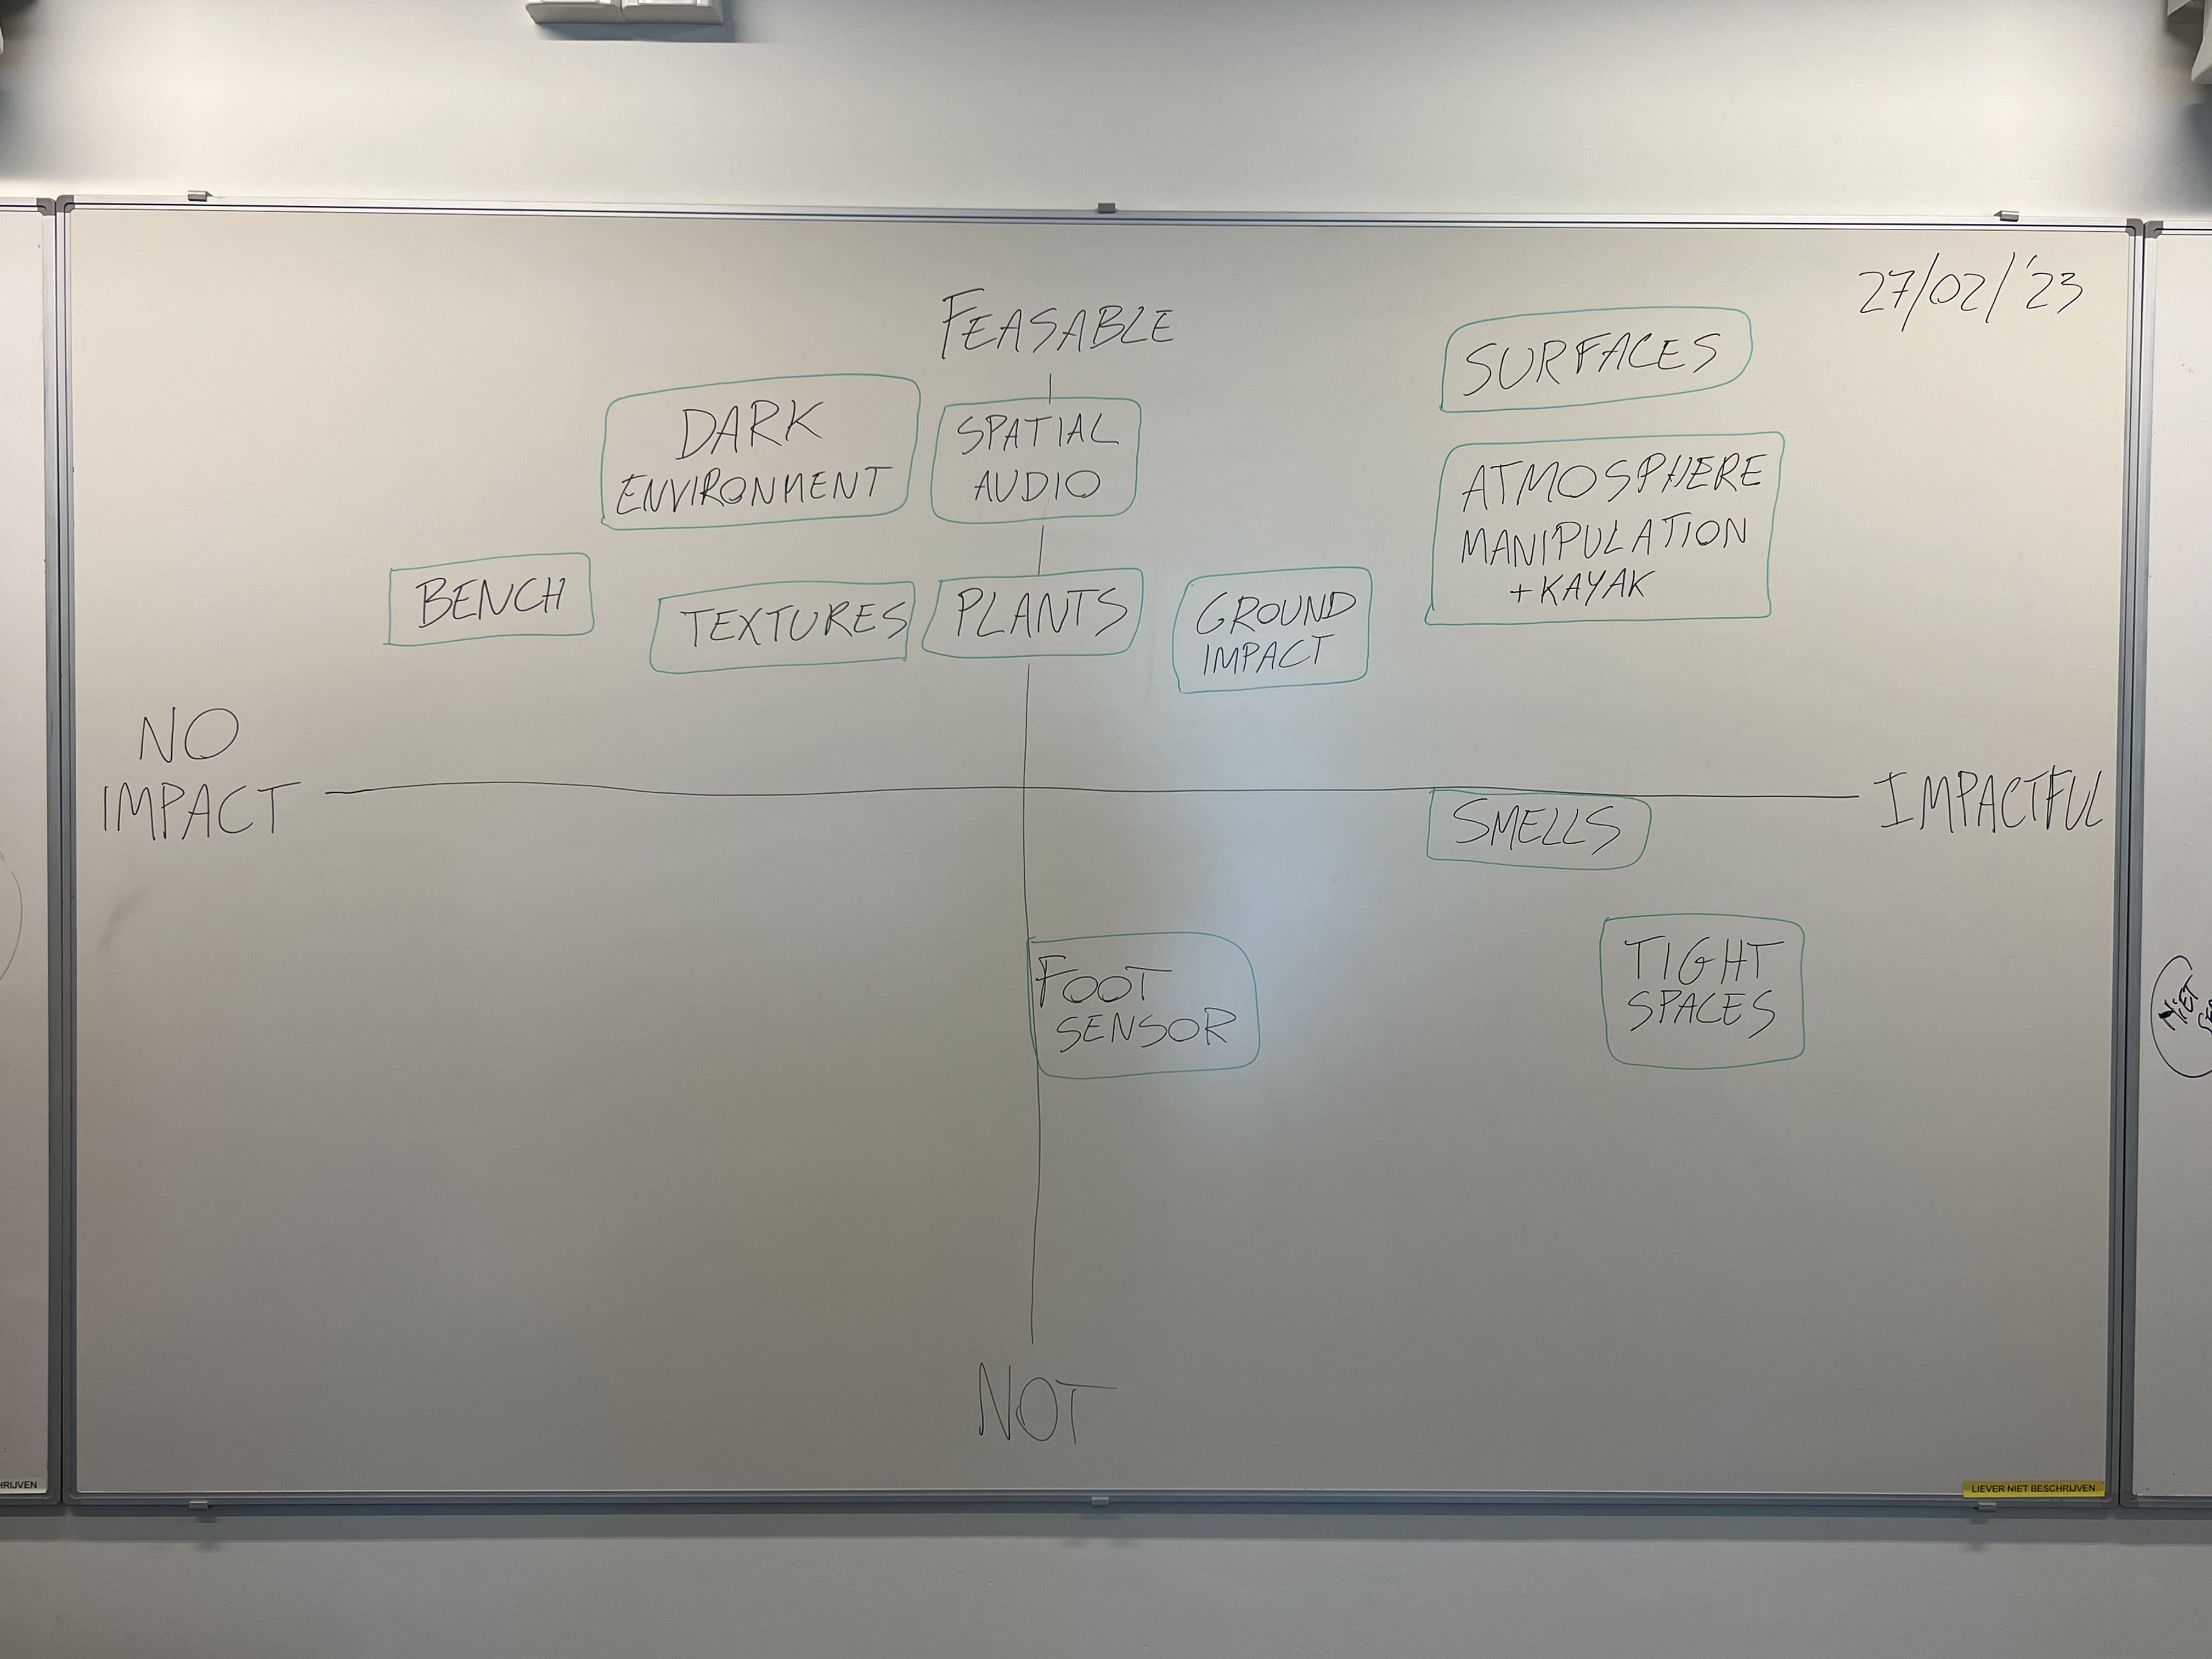 27/02/'23
FEASABLE
SURFACES
DARK
ENVIRONMENT
SPATIAL
AUDIO
ATMOSPHERE
MANIPULATION
+ KAYAK
BENCH
TEXTURES
PLANTS
GROUND
IMPACT
NO
IMPACT
IMPACTFUL
SMELLS
FOOT
SENSOR
TIGHT
SPACES
NIET
NOT
LIEVER NIET BESCHRIJVEN